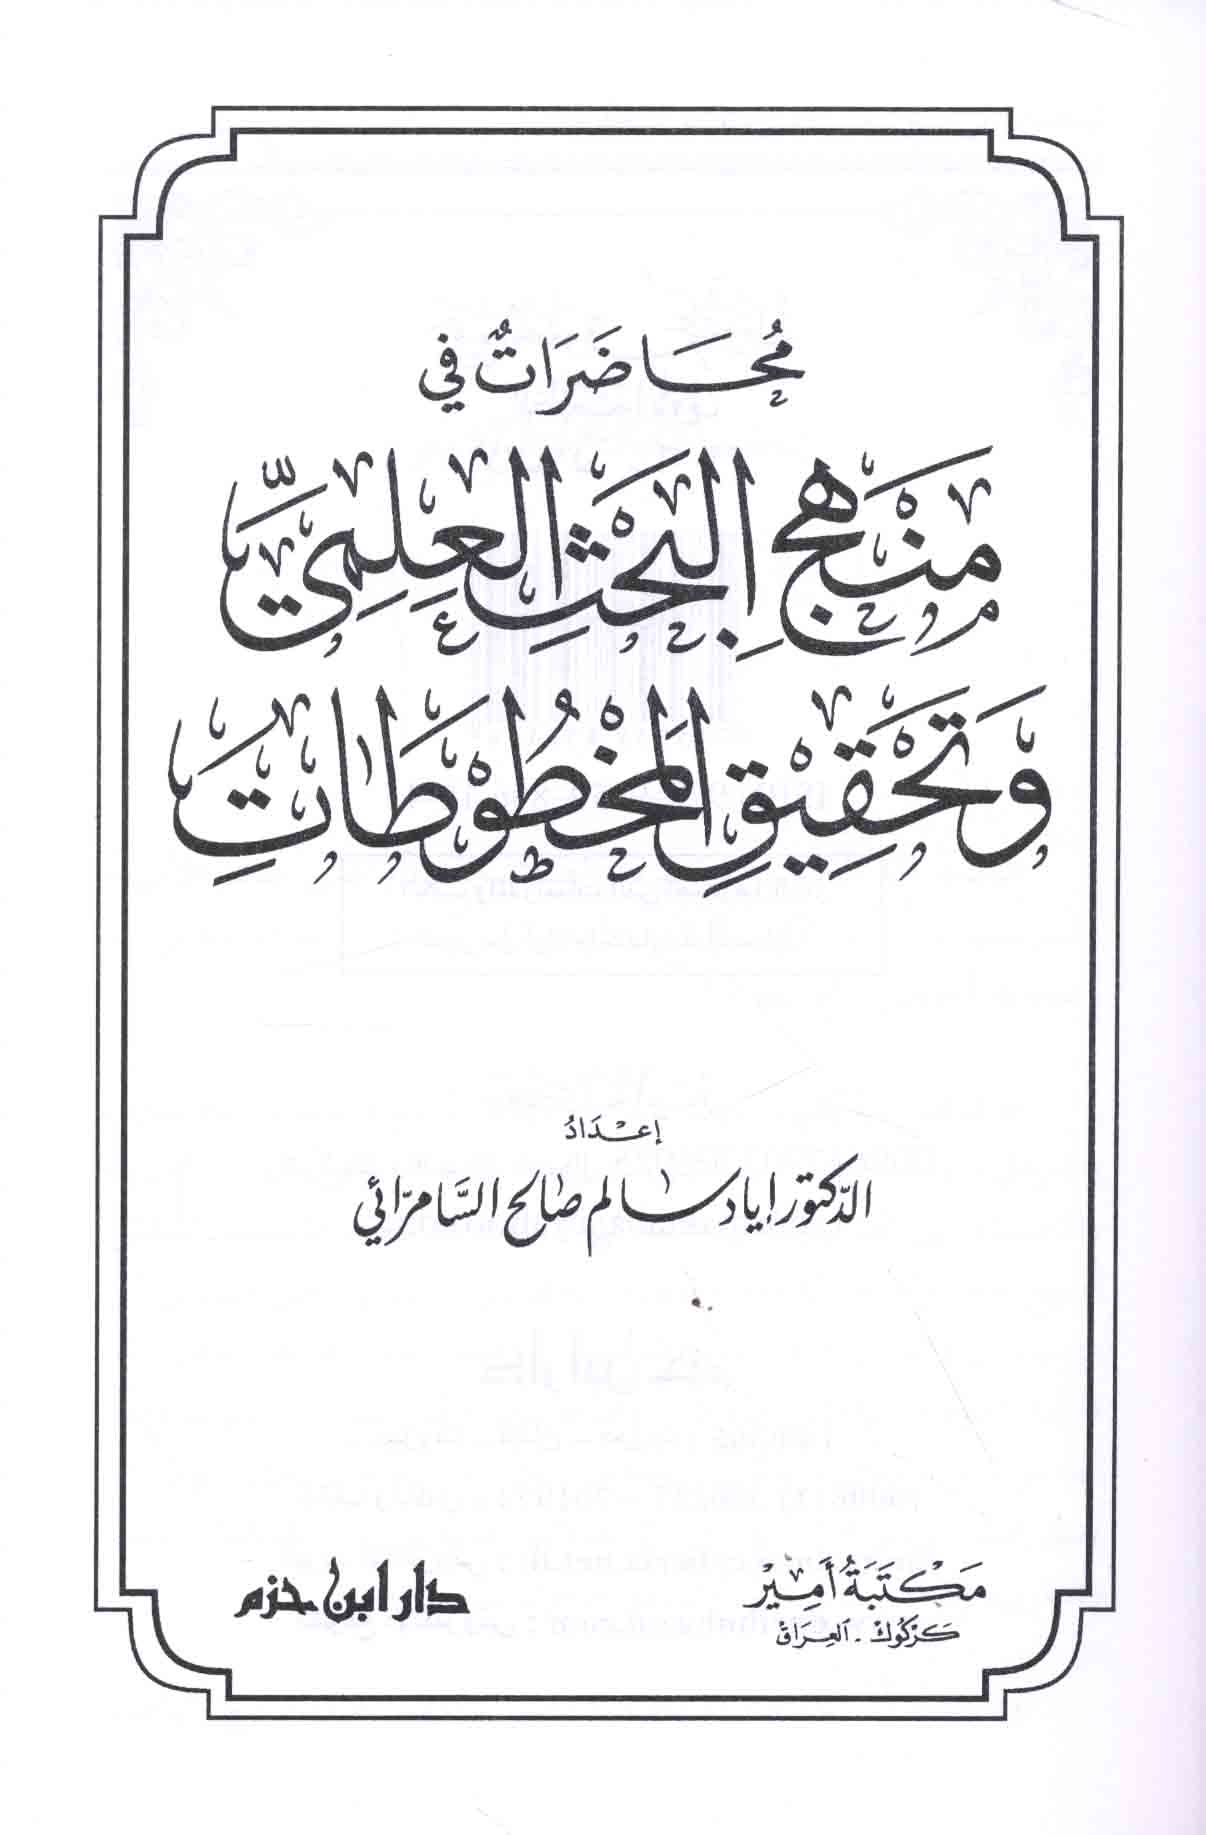 مُحَاضَرَاتٌ في
مَنْهَجِ البَحْثِ العِلْمِيِّ
وَتَحْقِيقِ المَخْطُوطَاتِ
إعْدَادُ
الدّكتور إياد سالم صالح السَّامرّائي
مَكْتَبَةُ أَمِيْر
كَرْكُوك - العِرَاق
دار ابن حزم